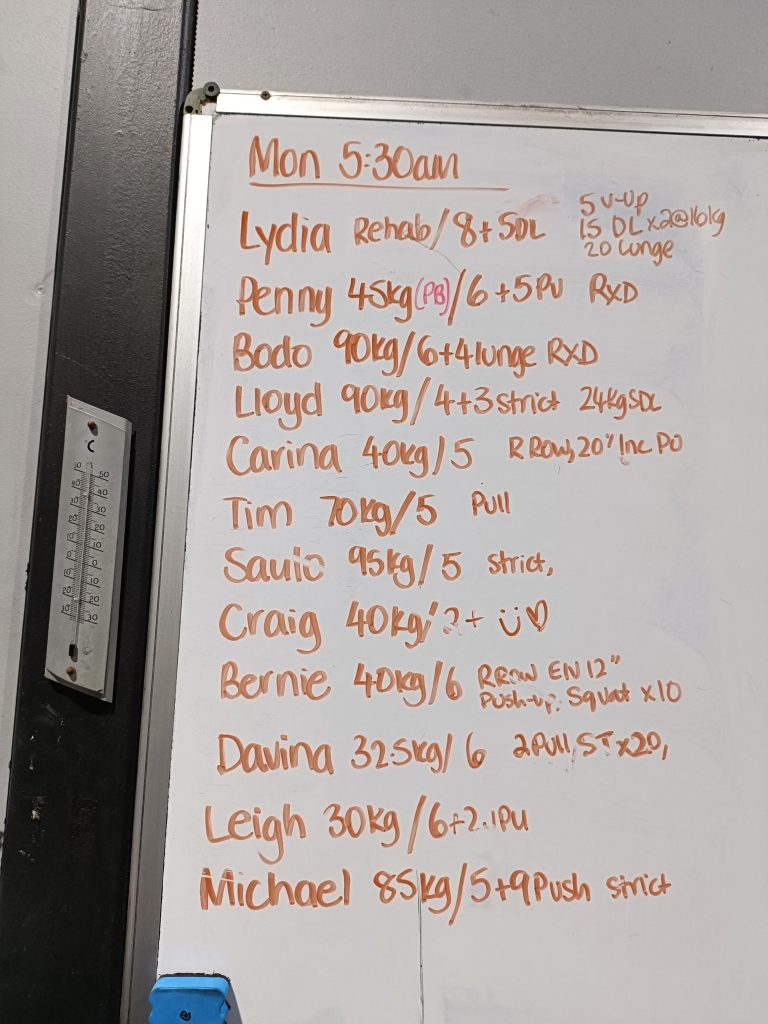 Mon 5:30am
Lydia Rehab/8+5DL
5 V-Up
15 DL x2@16kg
20 lunge
Penny 45kg(PB)/6+5PU RXD
Bodo 90kg/6+4lunge RXD
Lloyd 90kg/4+3strict 24kgSDL
Carina 40kg/5 R Row, 20" Inc PO
Tim 70kg/5 Pull
Savio 95kg/5 strict,
Craig 40kg/ + ü♡
Bernie 40kg/6 RRow EN 12"
Push-up, Squat x10
Davina 32.5kg/6 2Pull, ST x20,
Leigh 30kg/6+2 PU
Michael 85kg/5+9Push strict
°C
50 50
40 40
30 30
20 20
10 10
0 0
10 10
20 20
30 30